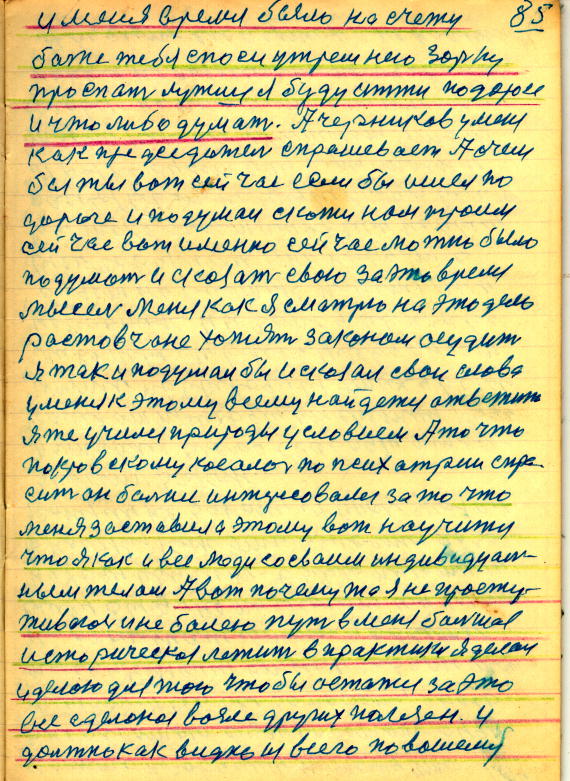 и меня время было на счету 85
боже тебя споси утрешнею зорьку
проспат лутши я буду итти подороге
и что либо думат. А черников у меня
как председател спрашевает А о чем
был ты вот сей час если бы ишел по
дороге и подумал скожи нам троим
сей час вот именно сей час можно было
подумат и сказат свою за это время
мысел меня как я сматрю на это дело
растовчане хотят законом осудит
я так и подумал бы и сказал свои слова
у меня к этому всему найдетця ответит
я же учился природы условием А то что
покровскому косалос по псих атрии спра-
сит он был ни интересовался за то что
меня заставила этому вот научитця
что я как и все люди со своим индивидуал-
ным телом А вот почему та я не просту-
живаюс и не болею пут в меня болшая
историческоя лежит в практики я делал
и делою для тово чтобы остатця за это
все сделоноя возле других полезен. и
должно как видно из всего по вашему